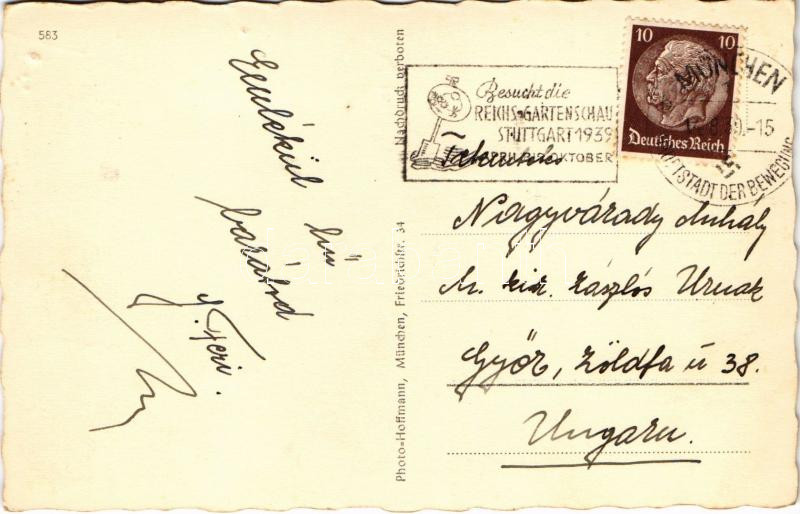 583
Emlékül
hű
barátod
J. Feri.
Photo-Hoffmann, München, Friedrichstr. 34
Nachdruck verboten
Besucht die
REICHS-GARTENSCHAU
STUTTGART 1939
OKTOBER
10 10
Deutsches Reich
MÜNCHEN
-15
TSTADT DER BEWEGUNG
Tekintetes
Nagyvárady Mihály
zászlós Urnak
Győr, Zöldfa u 38.
Ungarn.